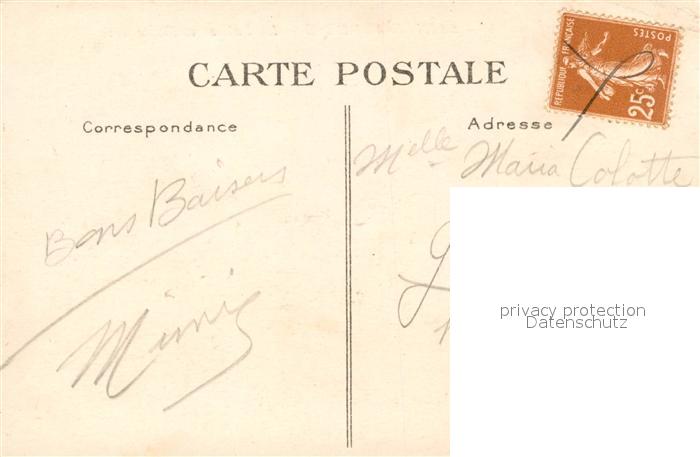 CARTE POSTALE
REPUBLIQUE FRANÇAISE
POSTES
25c
Correspondance
Adresse
Melle Maria Colotte
Bons Baisers
Mimi
privacy protection
Datenschutz